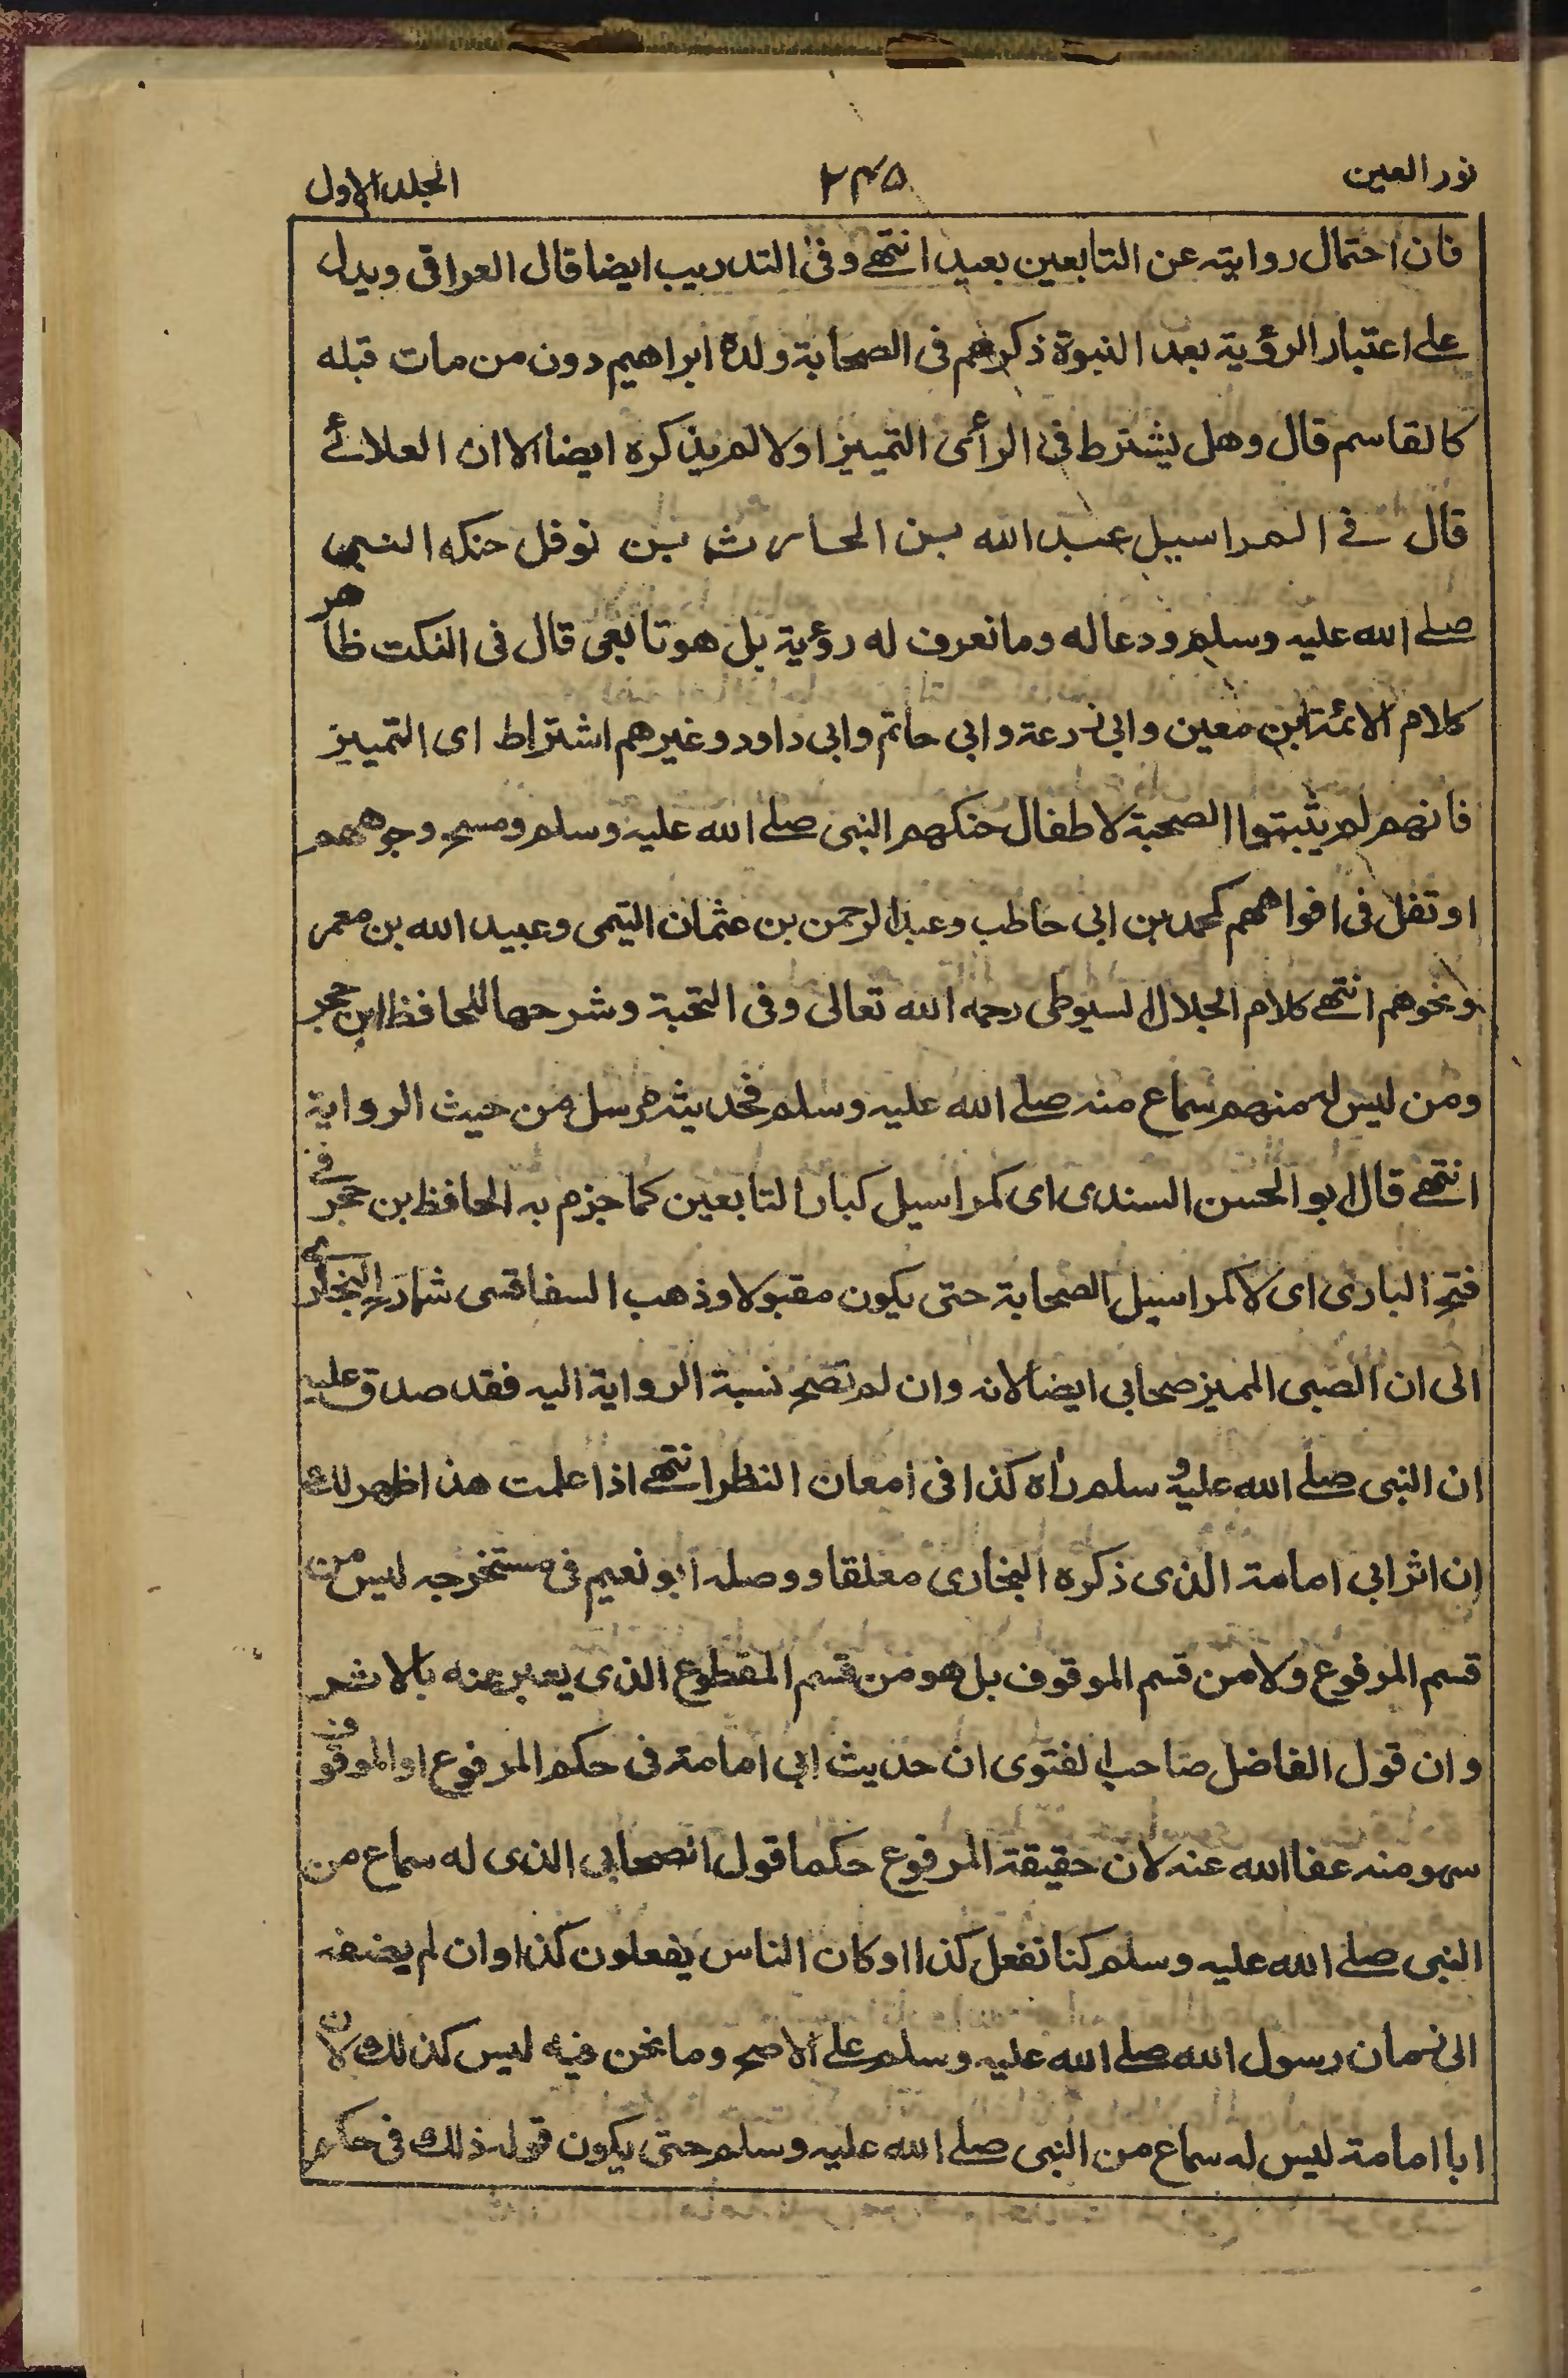 نور العين ۲۴۵ الجلد الاول
فان احتمال روايته عن التابعين بعيد انتهے وفى التدريب ايضا قال العراقى ويدل
علے اعتبار الرؤية بعد النبوة ذكرهم فى الصحابة ولده ابراهيم دون من مات قبله
كالقاسم قال وهل يشترط فى الرأى التمييز اولا لم يذكره ايضا الا ان العلائے
قال فے المراسيل عبد الله بن الحارث بن نوفل حنكه النبى
صلے الله عليه وسلم ودعا له وما نعرف له رؤية بل هو تابعى قال فى النكت ظاهر
كلام الائمة ابن معين وابى زرعة وابى حاتم وابى داود وغيرهم اشتراط اى التمييز
فانهم لم يثبتوا الصحبة لاطفال حنكهم النبى صلے الله عليه وسلم ومسح وجوههم
او تفل فى افواههم كمحمد بن ابى حاطب وعبد الرحمن بن عثمان التيمى وعبيد الله بن معمر
ونحوهم انتهے كلام الجلال السيوطى رحمه الله تعالى وفى النخبة وشرحها للحافظ ابن حجر
ومن ليس له منهم سماع منه صلے الله عليه وسلم فحديثه مرسل من حيث الرواية
انتهے قال ابو الحسن السندى اى كمراسيل كبار التابعين كما جزم به الحافظ بن حجر فے
فتح البارى اى لا كمراسيل الصحابة حتى يكون مقبولا وذهب السفاقسى شارح البخارى
الى ان الصبى المميز صحابى ايضا لانه وان لم تصح نسبة الرواية اليه فقد صدق عليه
ان النبى صلے الله عليه وسلم رأه كذا فى امعان النظر انتهے اذا علمت هذا ظهر لك
ان اثر ابى امامة الذى ذكره البخارى معلقا ووصله ابو نعيم فى مستخرجه ليس من
قسم المرفوع ولا من قسم الموقوف بل هو من قسم المقطوع الذى يعبر عنه بالاثر
وان قول الفاضل صاحب الفتوى ان حديث ابى امامة فى حكم المرفوع او الموقوف
سهو منه عفا الله عنه لان حقيقة المرفوع حكما قول الصحابى الذى له سماع من
النبى صلے الله عليه وسلم كنا نفعل كذا او كان الناس يفعلون كذا وان لم يضفه
الى زمان رسول الله صلے الله عليه وسلم علے الاصح وما نحن فيه ليس كذلك لان
ابا امامة ليس له سماع من النبى صلے الله عليه وسلم حتى يكون قوله ذلك فى حكم